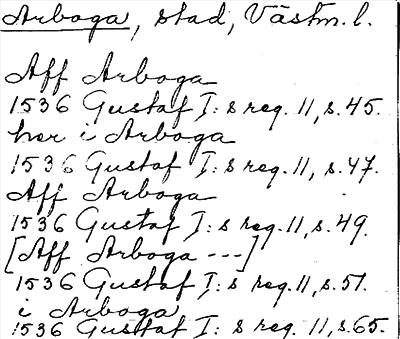 Arboga, stad, Västm. l.
Aff Arboga
1536 Gustaf I:s reg. 11, s. 45.
her i Arboga
1536 Gustaf I:s reg. 11, s. 47.
Aff Arboga
1536 Gustaf I:s reg. 11, s. 49.
[Aff Arboga ---]
1536 Gustaf I:s reg. 11, s. 51.
i Arboga
1536 Gustaf I:s reg. 11, s. 65.